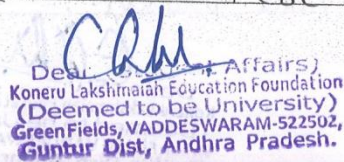 Dea Affairs)
Koneru Lakshmaiah Education Foundation
(Deemed to be University)
Green Fields, VADDESWARAM-522502,
Guntur Dist, Andhra Pradesh.